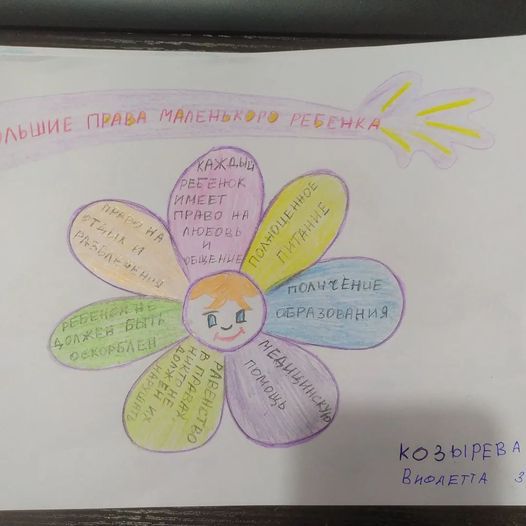 ОЛЬШИЕ ПРАВА МАЛЕНЬКОГО РЕБЕНКА
КАЖДЫЙ
РЕБЕНОК
ИМЕЕТ
ПРАВО НА
ЛЮБОВЬ
И
ОБЩЕНИЕ
ПОЛНОЦЕННОЕ
ПИТАНИЕ
ПОЛУЧЕНИЕ
ОБРАЗОВАНИЯ
МЕДИЦИНСКУЮ
ПОМОЩЬ
РАВЕНСТВО
В ПРАВАХ,
НИКТО НЕ
ДОЛЖЕН ИХ
НАРУШАТЬ
РЕБЕНОК НЕ
ДОЛЖЕН БЫТЬ
ОСКОРБЛЕН
ПРАВО НА
ОТДЫХ И
РАЗВЛЕЧЕНИЯ
КОЗЫРЕВА
ВИОЛЕТТА 3